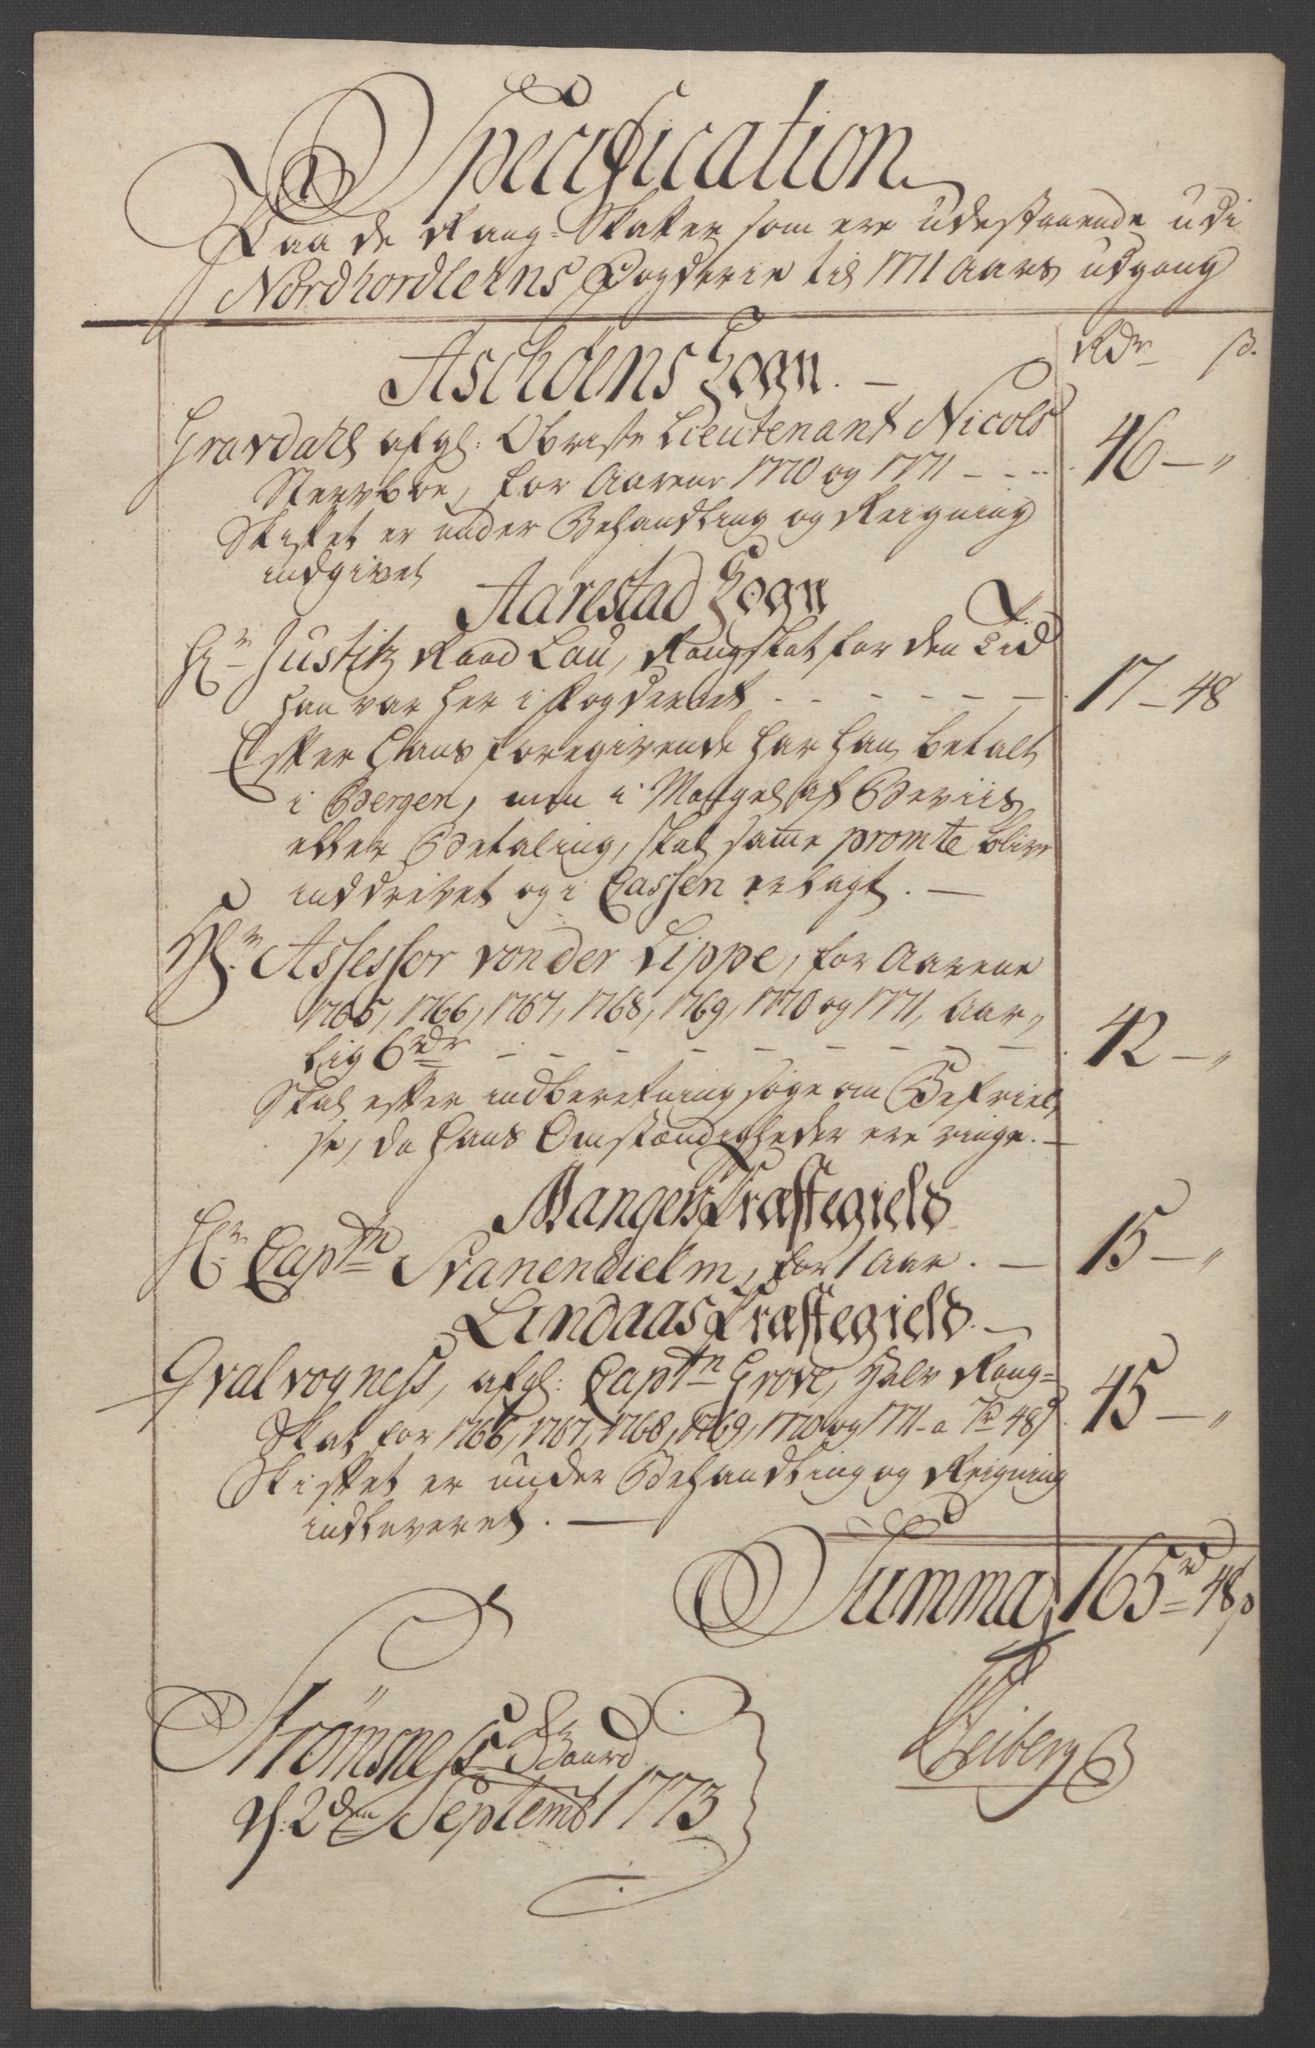 Specification
Paa de Rang-Skatter som ere udestaaende udi
Nordhordlehns Fogderie til 1771 Aars udgang
Rdr ß.
Aschöens Sogn. —
Gravdahl afgl: Obriste Lieutenant Nicols
Stervboe, for Aarene 1770 og 1771 - - - 46 — „
Skiftet er under Behandling og Reigning
indgivet
Aarestad Sogn
Hr Justitz Raad Lau, Rangskat for den Tid
han var her i Fogderiet - - - - - - 17 — 48
Efter Hans foregivende har han betalt
i Bergen, men i Mangel af Beviis
eller Betaling, skal same promte blive
inddrivet og i Cassen erlagt. —
Hr. Assessor von der Lippe, for Aarene
1765, 1766, 1767, 1768, 1769, 1770 og 1771, Aar„
lig 6 rdr - - - - - - - - 42 — „
Skal efter indberetning søge om Befriel„
se, da hans Omstændigheder ere ringe. —
Mangers Præstegield
Hr Captn Svanenhielm, for 1 Aar. — 15 — „
Lindaas Præstegield. —
Qvalvogness, afgl: Captn Grove, Halv Rang=
Skat for 1766, 1767, 1768, 1769, 1770 og 1771 a 7 rd 48 ß 45 — „
Skiftet er under Behandling og Reigning
indleveret. —
Summa 165 rd = 48 ß
Strömsness Gaard
d: 2den Septembr 1773
Heiberg